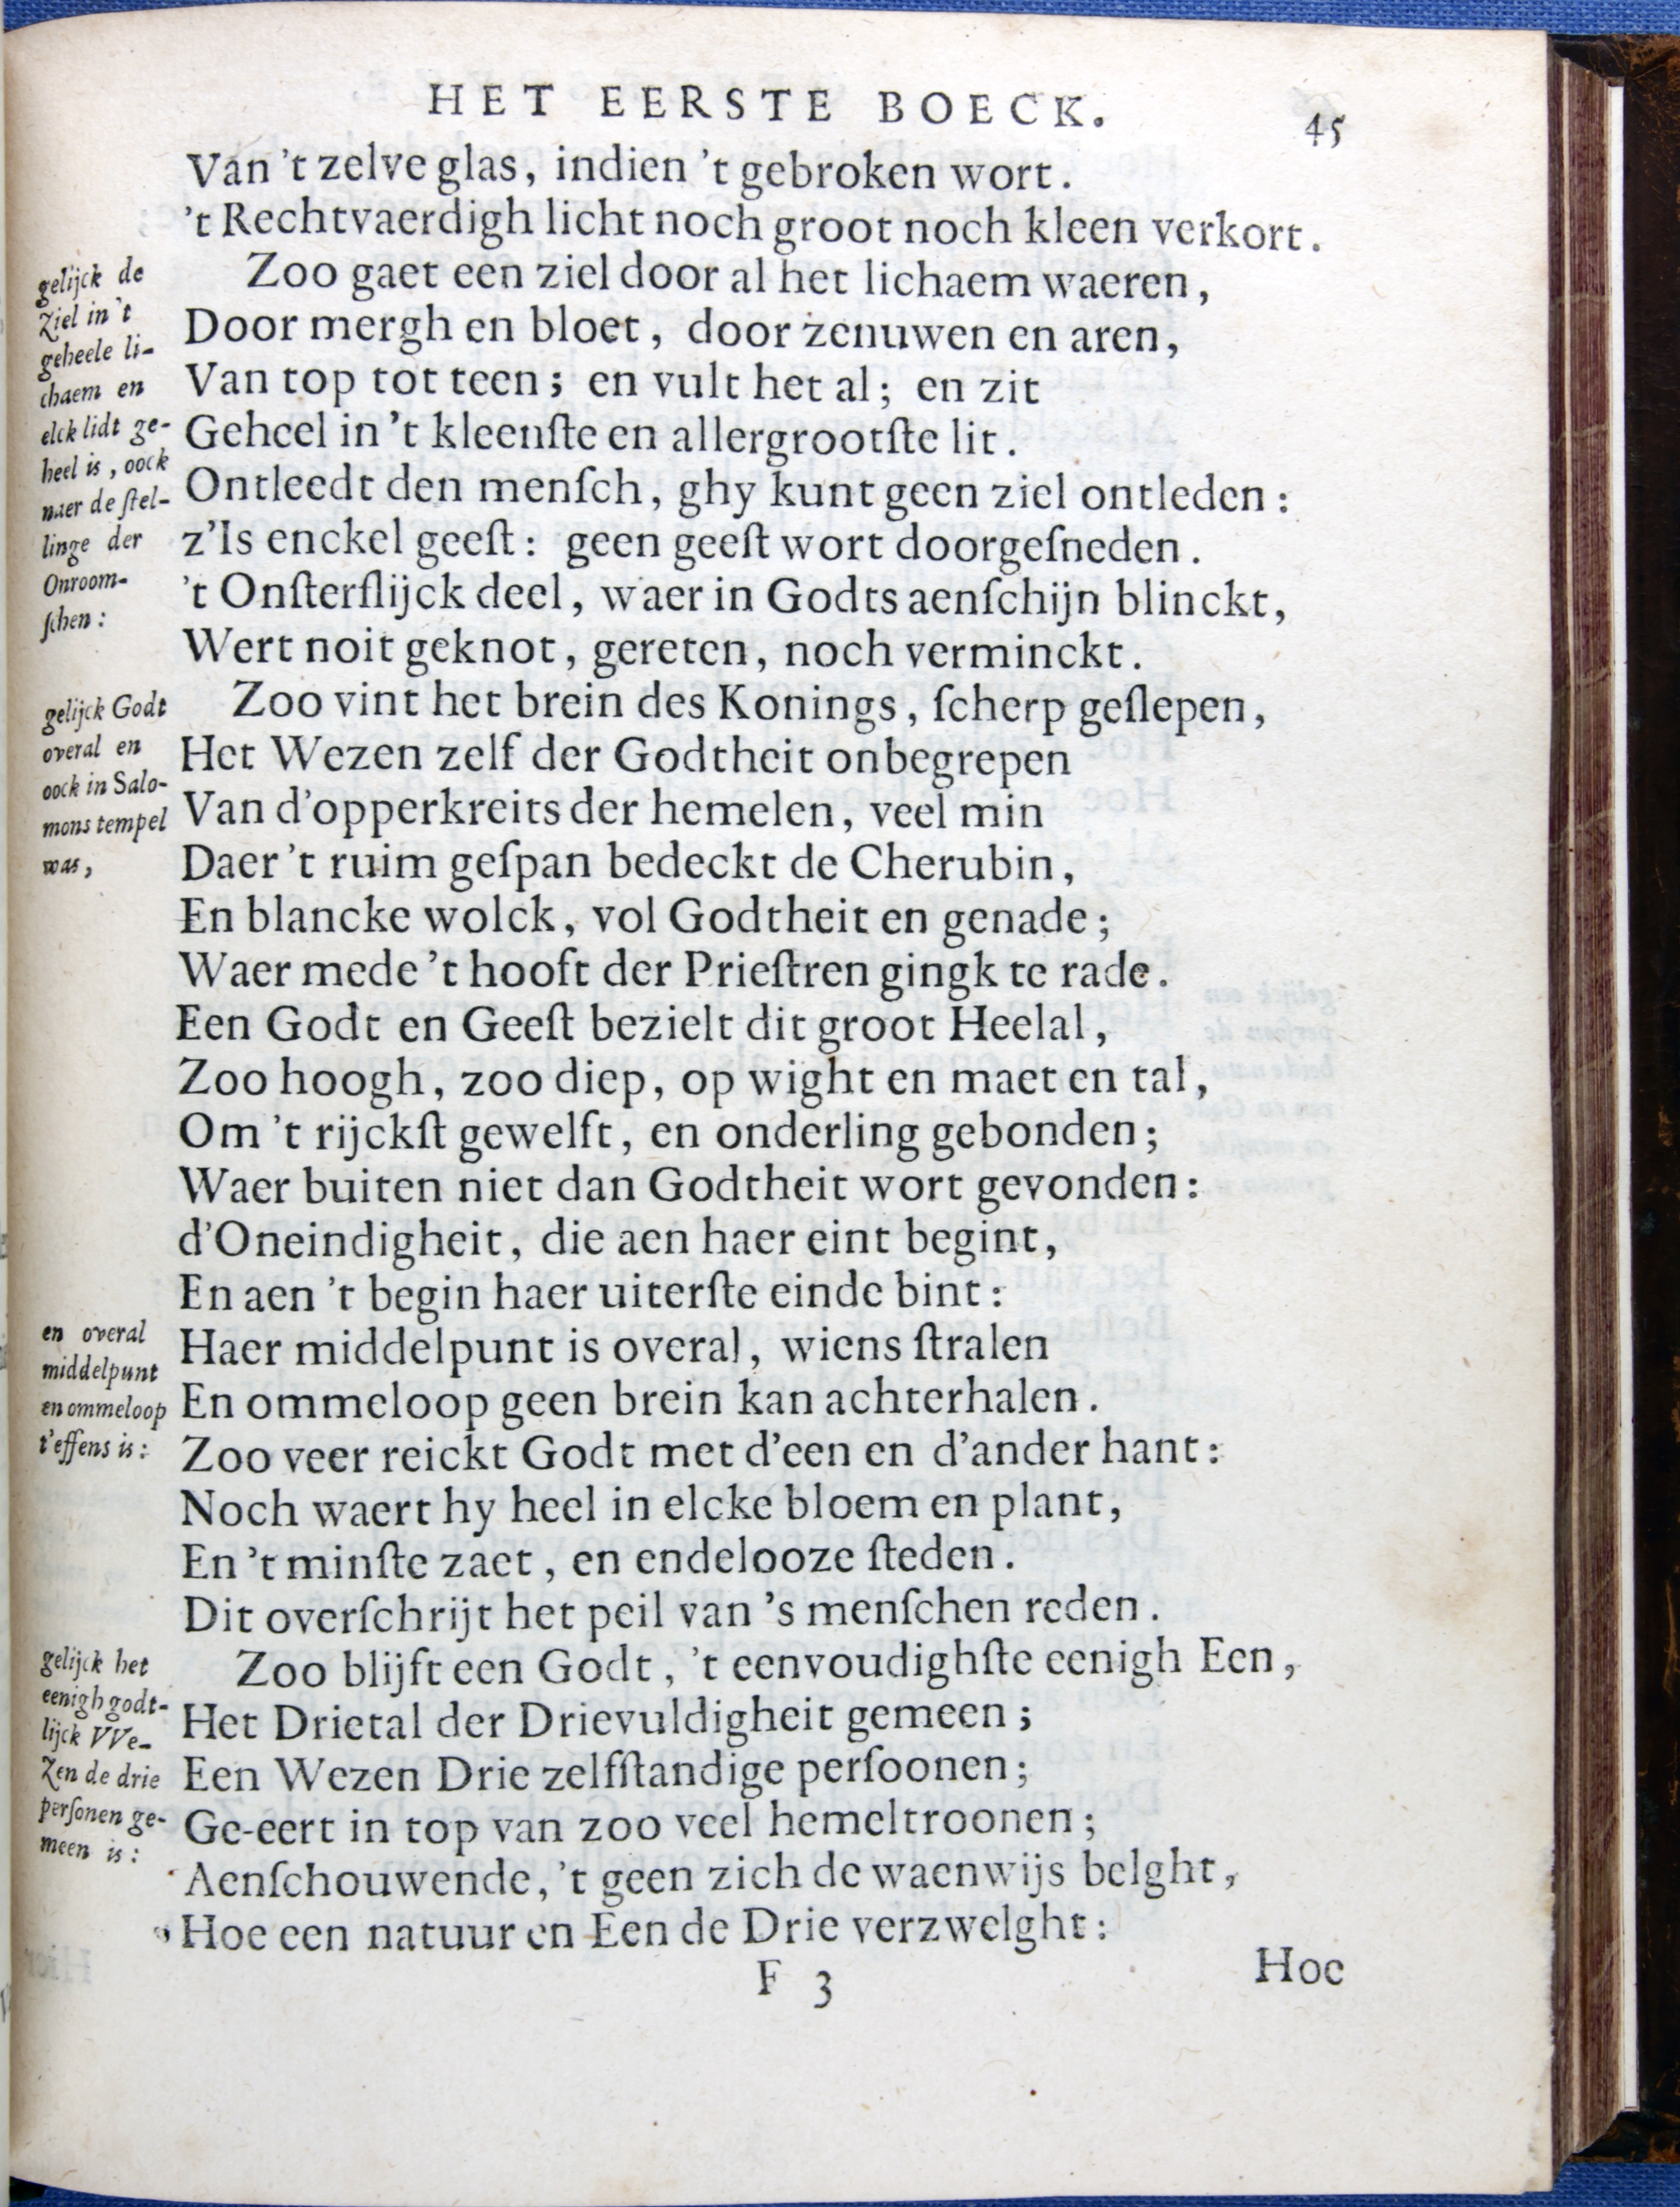 HET EERSTE BOECK.
45
Van 't zelve glas, indien 't gebroken wort.
't Rechtvaerdigh licht noch groot noch kleen verkort.
Zoo gaet een ziel door al het lichaem waeren,
Door mergh en bloet, door zenuwen en aren,
Van top tot teen; en vult het al; en zit
Geheel in 't kleenſte en allergrootſte lit.
Ontleedt den menſch, ghy kunt geen ziel ontleden:
z'Is enckel geeſt: geen geeſt wort doorgeſneden.
't Onſterflijck deel, waer in Godts aenſchijn blinckt,
Wert noit geknot, gereten, noch verminckt.
Zoo vint het brein des Konings, ſcherp geſlepen,
Het Wezen zelf der Godtheit onbegrepen
Van d'opperkreits der hemelen, veel min
Daer 't ruim geſpan bedeckt de Cherubin,
En blancke wolck, vol Godtheit en genade;
Waer mede 't hooft der Prieſtren gingk te rade.
Een Godt en Geeſt bezielt dit groot Heelal,
Zoo hoogh, zoo diep, op wight en maet en tal,
Om 't rijckſt gewelft, en onderling gebonden;
Waer buiten niet dan Godtheit wort gevonden:
d'Oneindigheit, die aen haer eint begint,
En aen 't begin haer uiterſte einde bint:
Haer middelpunt is overal, wiens ſtralen
En ommeloop geen brein kan achterhalen.
Zoo veer reickt Godt met d'een en d'ander hant:
Noch waert hy heel in elcke bloem en plant,
En 't minſte zaet, en endelooze ſteden.
Dit overſchrijt het peil van 's menſchen reden.
Zoo blijft een Godt, 't eenvoudighſte eenigh Een,
Het Drietal der Drievuldigheit gemeen;
Een Wezen Drie zelfſtandige perſoonen;
Ge-eert in top van zoo veel hemeltroonen;
Aenſchouwende, 't geen zich de waenwijs belght,
Hoe een natuur en Een de Drie verzwelght:
F 3
Hoe
gelijck de
Ziel in 't
geheele li-
chaem en
elck lidt ge-
heel is, oock
naer de ſtel-
linge der
Onroom-
ſchen:
gelijck Godt
overal en
oock in Salo-
mons tempel
was,
en overal
middelpunt
en ommeloop
t'effens is:
gelijck het
eenigh godt-
lijck VVe-
Zen de drie
perſonen ge-
meen is: